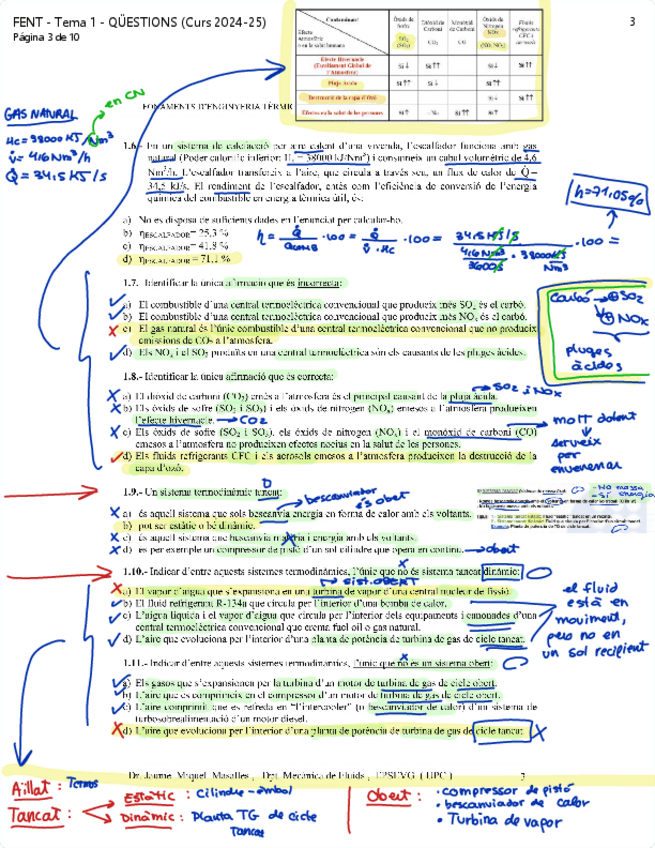 FENT - Tema 1 - QÜESTIONS (Curs 2024-25)
3
Página 3 de 10
Contaminant
Òxids de Sofre
SO₂ (SO₃)
Diòxid de Carboni
CO₂
Monòxid de Carboni
CO
Òxids de Nitrogen
NOx
(NO, NO₂)
Fluids refrigerants CFC i aerosols
Efecte atmosfèric o en la salut humana
Efecte Hivernacle
(Escalfament Global de l'Atmosfera)
Sí ↓
Sí ↑↑
Sí ↓
Sí ↑↑
Pluja Àcida
Sí ↑↑
Sí ↓
Sí ↑↑
Destrucció de la capa d'Ozó
Sí ↓
Sí ↑↑
Efectes en la salut de les persones
Sí ↑
No
Sí ↑↑
Sí ↑
FONAMENTS D'ENGINYERIA TÈRMIC
en CN
GAS NATURAL
Hc = 38000 KJ/Nm³
V̇ = 4,6 Nm³/h
Q̇ = 34,5 KJ/s
1.6.- En un sistema de calefacció per aire calent d'una vivenda, l'escalfador funciona amb gas
natural (Poder calorífic inferior: Hc = 38000 kJ/Nm³) i consumeix un cabal volumètric de 4,6
Nm³/h. L'escalfador transfereix a l'aire, que circula a través seu, un flux de calor de Q̇=
34,5 kJ/s. El rendiment de l'escalfador, entès com l'eficiència de conversió de l'energia
química del combustible en energia tèrmica útil, és:
a) No es disposa de suficients dades en l'enunciat per calcular-ho.
b) ηESCALFADOR = 25,3 %
c) ηESCALFADOR = 41,8 %
d) ηESCALFADOR = 71,1 %
η = Q̇ / Q̇COMB · 100 = Q̇ / V̇ · Hc · 100 = 34,5 KJ/s / 4,6 Nm³ / 3600 s · 38000 KJ / Nm³ · 100 =
η = 71,05 %
1.7. Identificar la única afirmació que és incorrecta:
a) El combustible d'una central termoelèctrica convencional que produeix més SO₂ és el carbó.
b) El combustible d'una central termoelèctrica convencional que produeix més NOx és el carbó.
c) El gas natural és l'únic combustible d'una central termoelèctrica convencional que no produeix
emissions de CO₂ a l'atmosfera.
d) Els NOx i el SO₂ produïts en una central termoelèctrica són els causants de les pluges àcides.
Carbó → ⊕SO₂
⊕ NOx
pluges
àcides
1.8.- Identificar la única afirmació que és correcta:
SO₂ i NOx
a) El diòxid de carboni (CO₂) emès a l'atmosfera és el principal causant de la pluja àcida.
b) Els òxids de sofre (SO₂ i SO₃) i els òxids de nitrogen (NOx) emesos a l'atmosfera produeixen
l'efecte hivernacle. → CO₂
c) Els òxids de sofre (SO₂ i SO₃), els òxids de nitrogen (NOx) i el monòxid de carboni (CO)
emesos a l'atmosfera no produeixen efectes nocius en la salut de les persones.
d) Els fluids refrigerants CFC i els aerosols emesos a l'atmosfera produeixen la destrucció de la
capa d'ozó.
molt dolent
serveix
per
envenenar
1.9.- Un sistema termodinàmic tancat:
bescanviador
és obert
a) és aquell sistema que sols bescanvia energia en forma de calor amb els voltants.
b) pot ser estàtic o bé dinàmic.
c) és aquell sistema que bescanvia matèria i energia amb els voltants.
d) és per exemple un compressor de pistó d'un sol cilindre que opera en continu. → obert
- No massa
- Sí energia
1.10.- Indicar d'entre aquests sistemes termodinàmics, l'únic que no és sistema tancat dinàmic:
sist. OBERT
a) El vapor d'aigua que s'expansiona en una turbina de vapor d'una central nuclear de fissió.
b) El fluid refrigerant R-134a que circula per l'interior d'una bomba de calor.
c) L'aigua líquida i el vapor d'aigua que circula per l'interior dels equipaments i canonades d'una
central termoelèctrica convencional que crema fuel oil o gas natural.
d) L'aire que evoluciona per l'interior d'una planta de potència de turbina de gas de cicle tancat.
el fluid
està en
moviment,
però no en
un sol recipient
1.11.- Indicar d'entre aquests sistemes termodinàmics, l'únic que no és un sistema obert:
a) Els gasos que s'expansionen per la turbina d'un motor de turbina de gas de cicle obert.
b) L'aire que es comprimeix en el compressor d'un motor de turbina de gas de cicle obert.
c) L'aire comprimit que es refreda en "l'intercooler" (o bescanviador de calor) d'un sistema de
turbosobrealimentació d'un motor diesel.
d) L'aire que evoluciona per l'interior d'una planta de potència de turbina de gas de cicle tancat.
Dr. Jaume Miquel Masalles, Dpt. Mecànica de Fluids, EPSEVG (UPC)
3
Aïllat : Termos
Tancat :
Estàtic : Cilindre - èmbol
Dinàmic : Planta TG de cicle
tancat
Obert :
· compressor de pistó
· bescanviador de calor
· Turbina de vapor